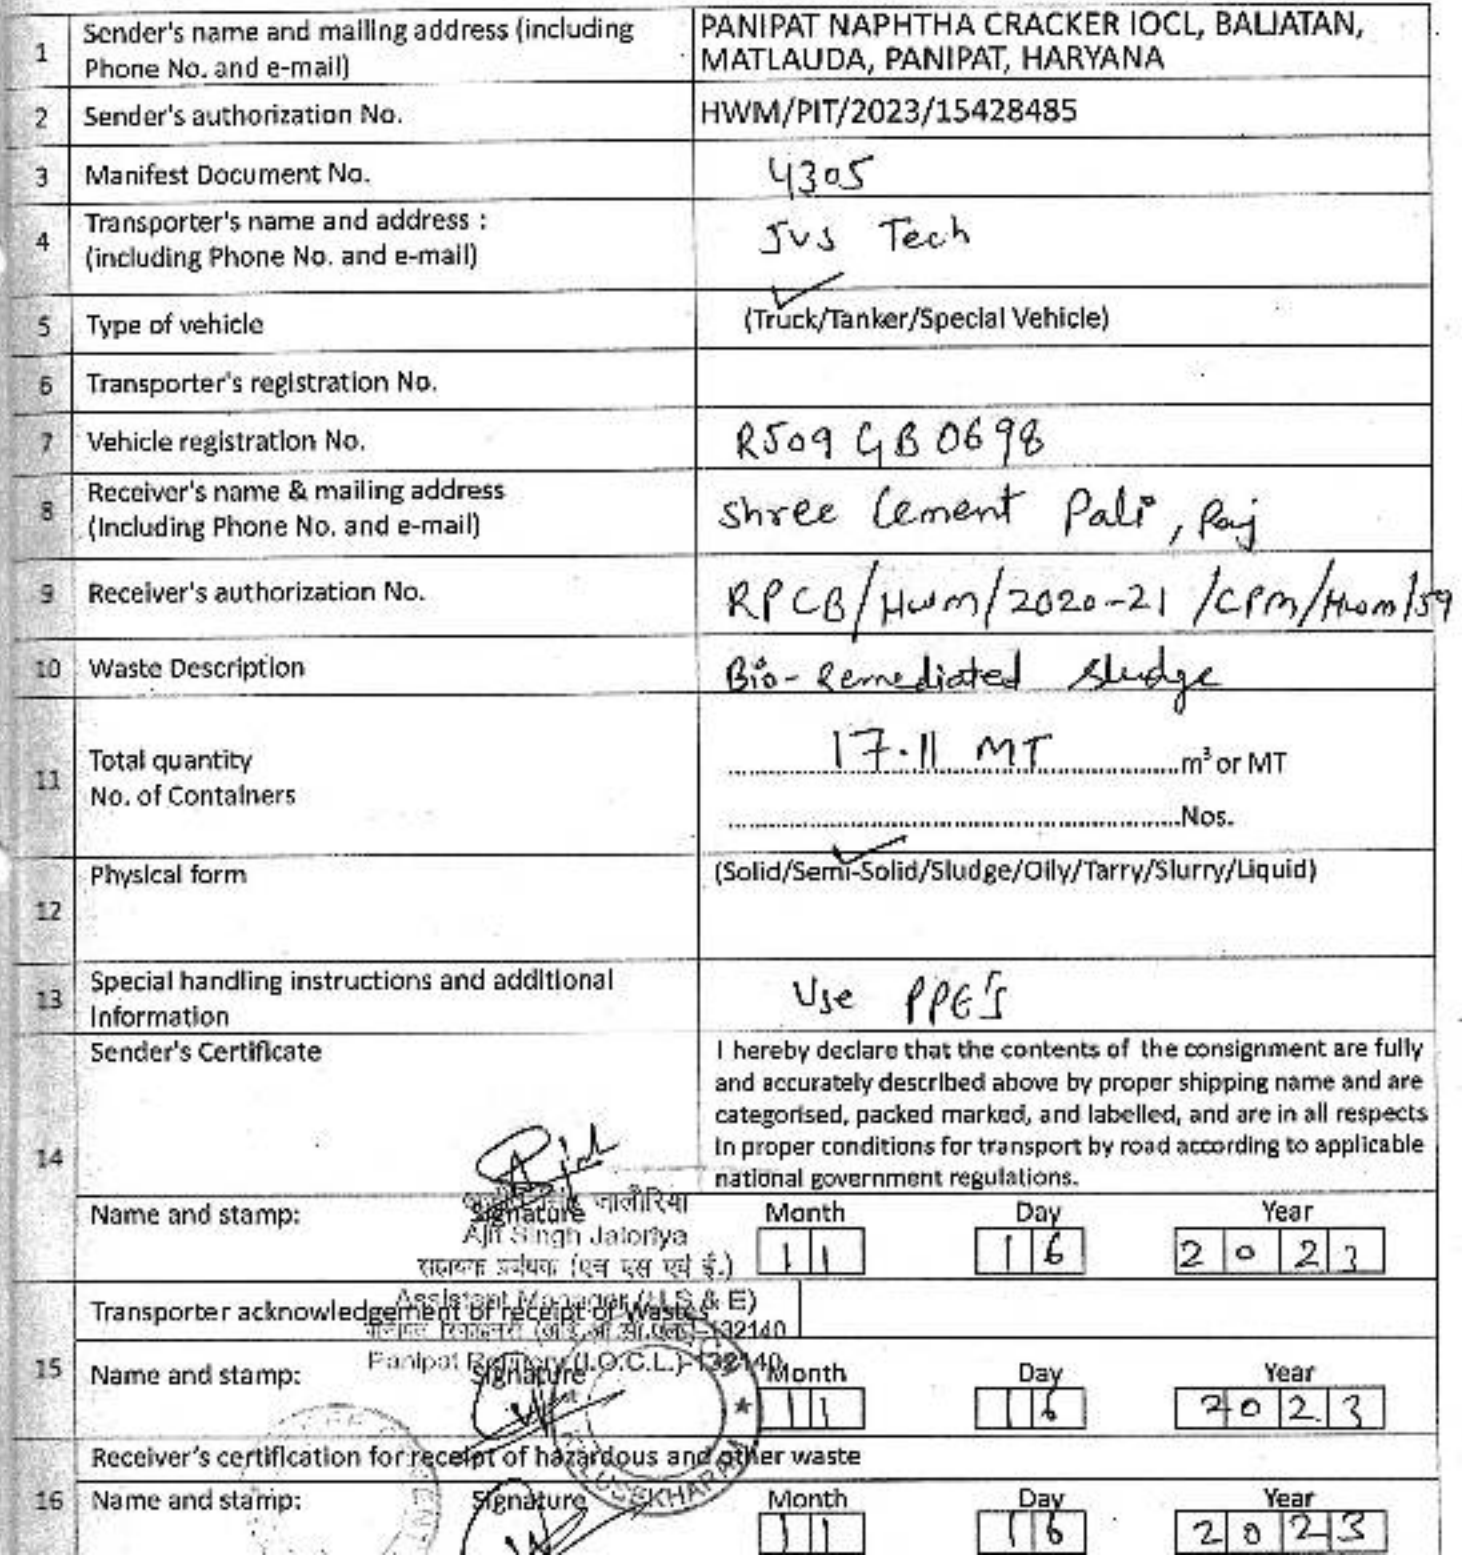 1 Sender's name and mailing address (including Phone No. and e-mail) PANIPAT NAPHTHA CRACKER IOCL, BALJATAN, MATLAUDA, PANIPAT, HARYANA
2 Sender's authorization No. HWM/PIT/2023/15428485
3 Manifest Document No. 4305
4 Transporter's name and address : (including Phone No. and e-mail) JVS Tech
5 Type of vehicle (Truck/Tanker/Special Vehicle)
6 Transporter's registration No.
7 Vehicle registration No. RJ09 GB 0698
8 Receiver's name & mailing address (Including Phone No. and e-mail) Shree Cement Pali, Raj
9 Receiver's authorization No. RPCB/Hwm/2020-21/CPM/Hwm/59
10 Waste Description Bio-Remediated Sludge
11 Total quantity 17.11 MT m³ or MT
No. of Containers Nos.
12 Physical form (Solid/Semi-Solid/Sludge/Oily/Tarry/Slurry/Liquid)
13 Special handling instructions and additional information Use PPE's
14 Sender's Certificate
I hereby declare that the contents of the consignment are fully
and accurately described above by proper shipping name and are
categorised, packed marked, and labelled, and are in all respects
in proper conditions for transport by road according to applicable
national government regulations.
Name and stamp: Signature Month Day Year
11 16 2023
जालोरिया
Ajit Singh Jaloriya
सहायक प्रबंधक (एच एस एवं ई.)
Assistant Manager (H.S & E)
132140
Panipat Refinery (I.O.C.L.)-132140
Transporter acknowledgement of receipt of Wastes
15 Name and stamp: Signature Month Day Year
11 16 2023
Receiver's certification for receipt of hazardous and other waste
16 Name and stamp: Signature Month Day Year
11 16 2023